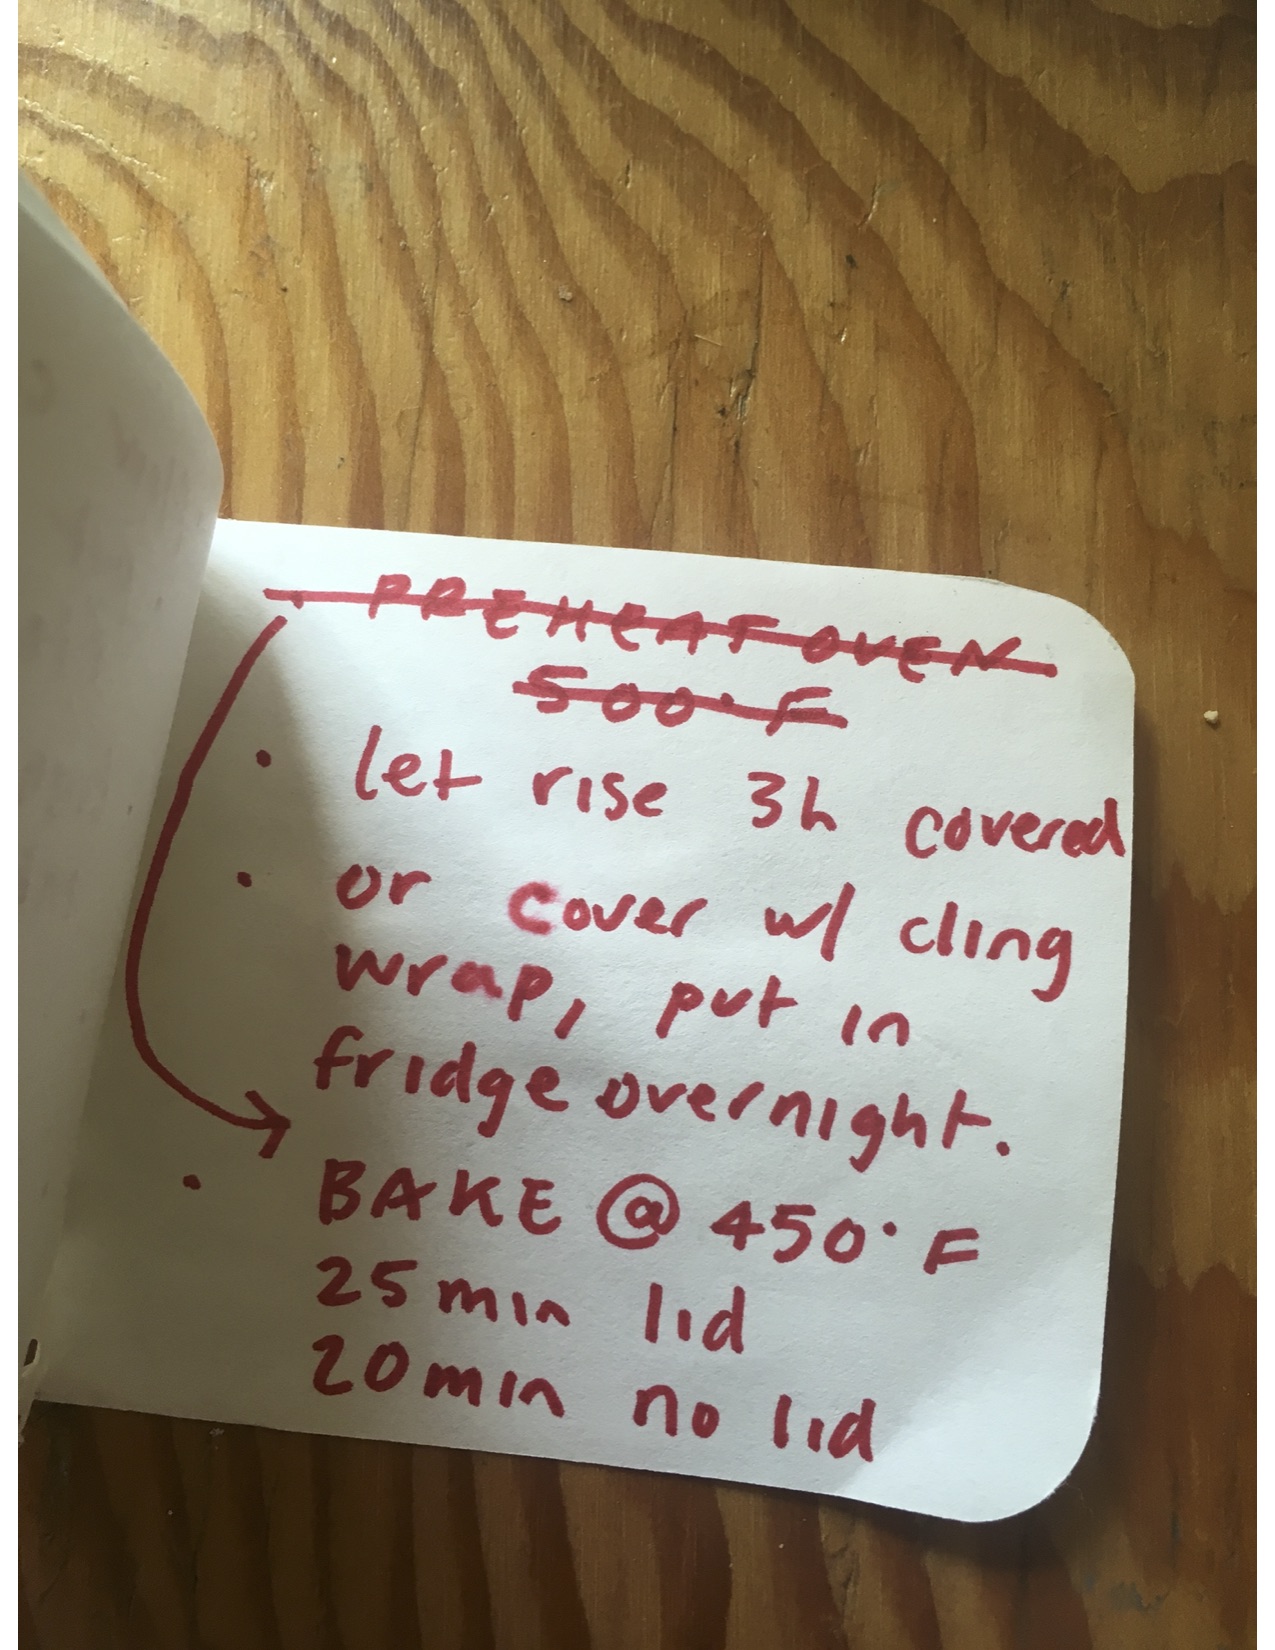 • PREHEAT OVEN
500°F
• let rise 3h covered
• or cover w/ cling
wrap, put in
fridge overnight.
• BAKE @ 450°F
25min lid
20min no lid